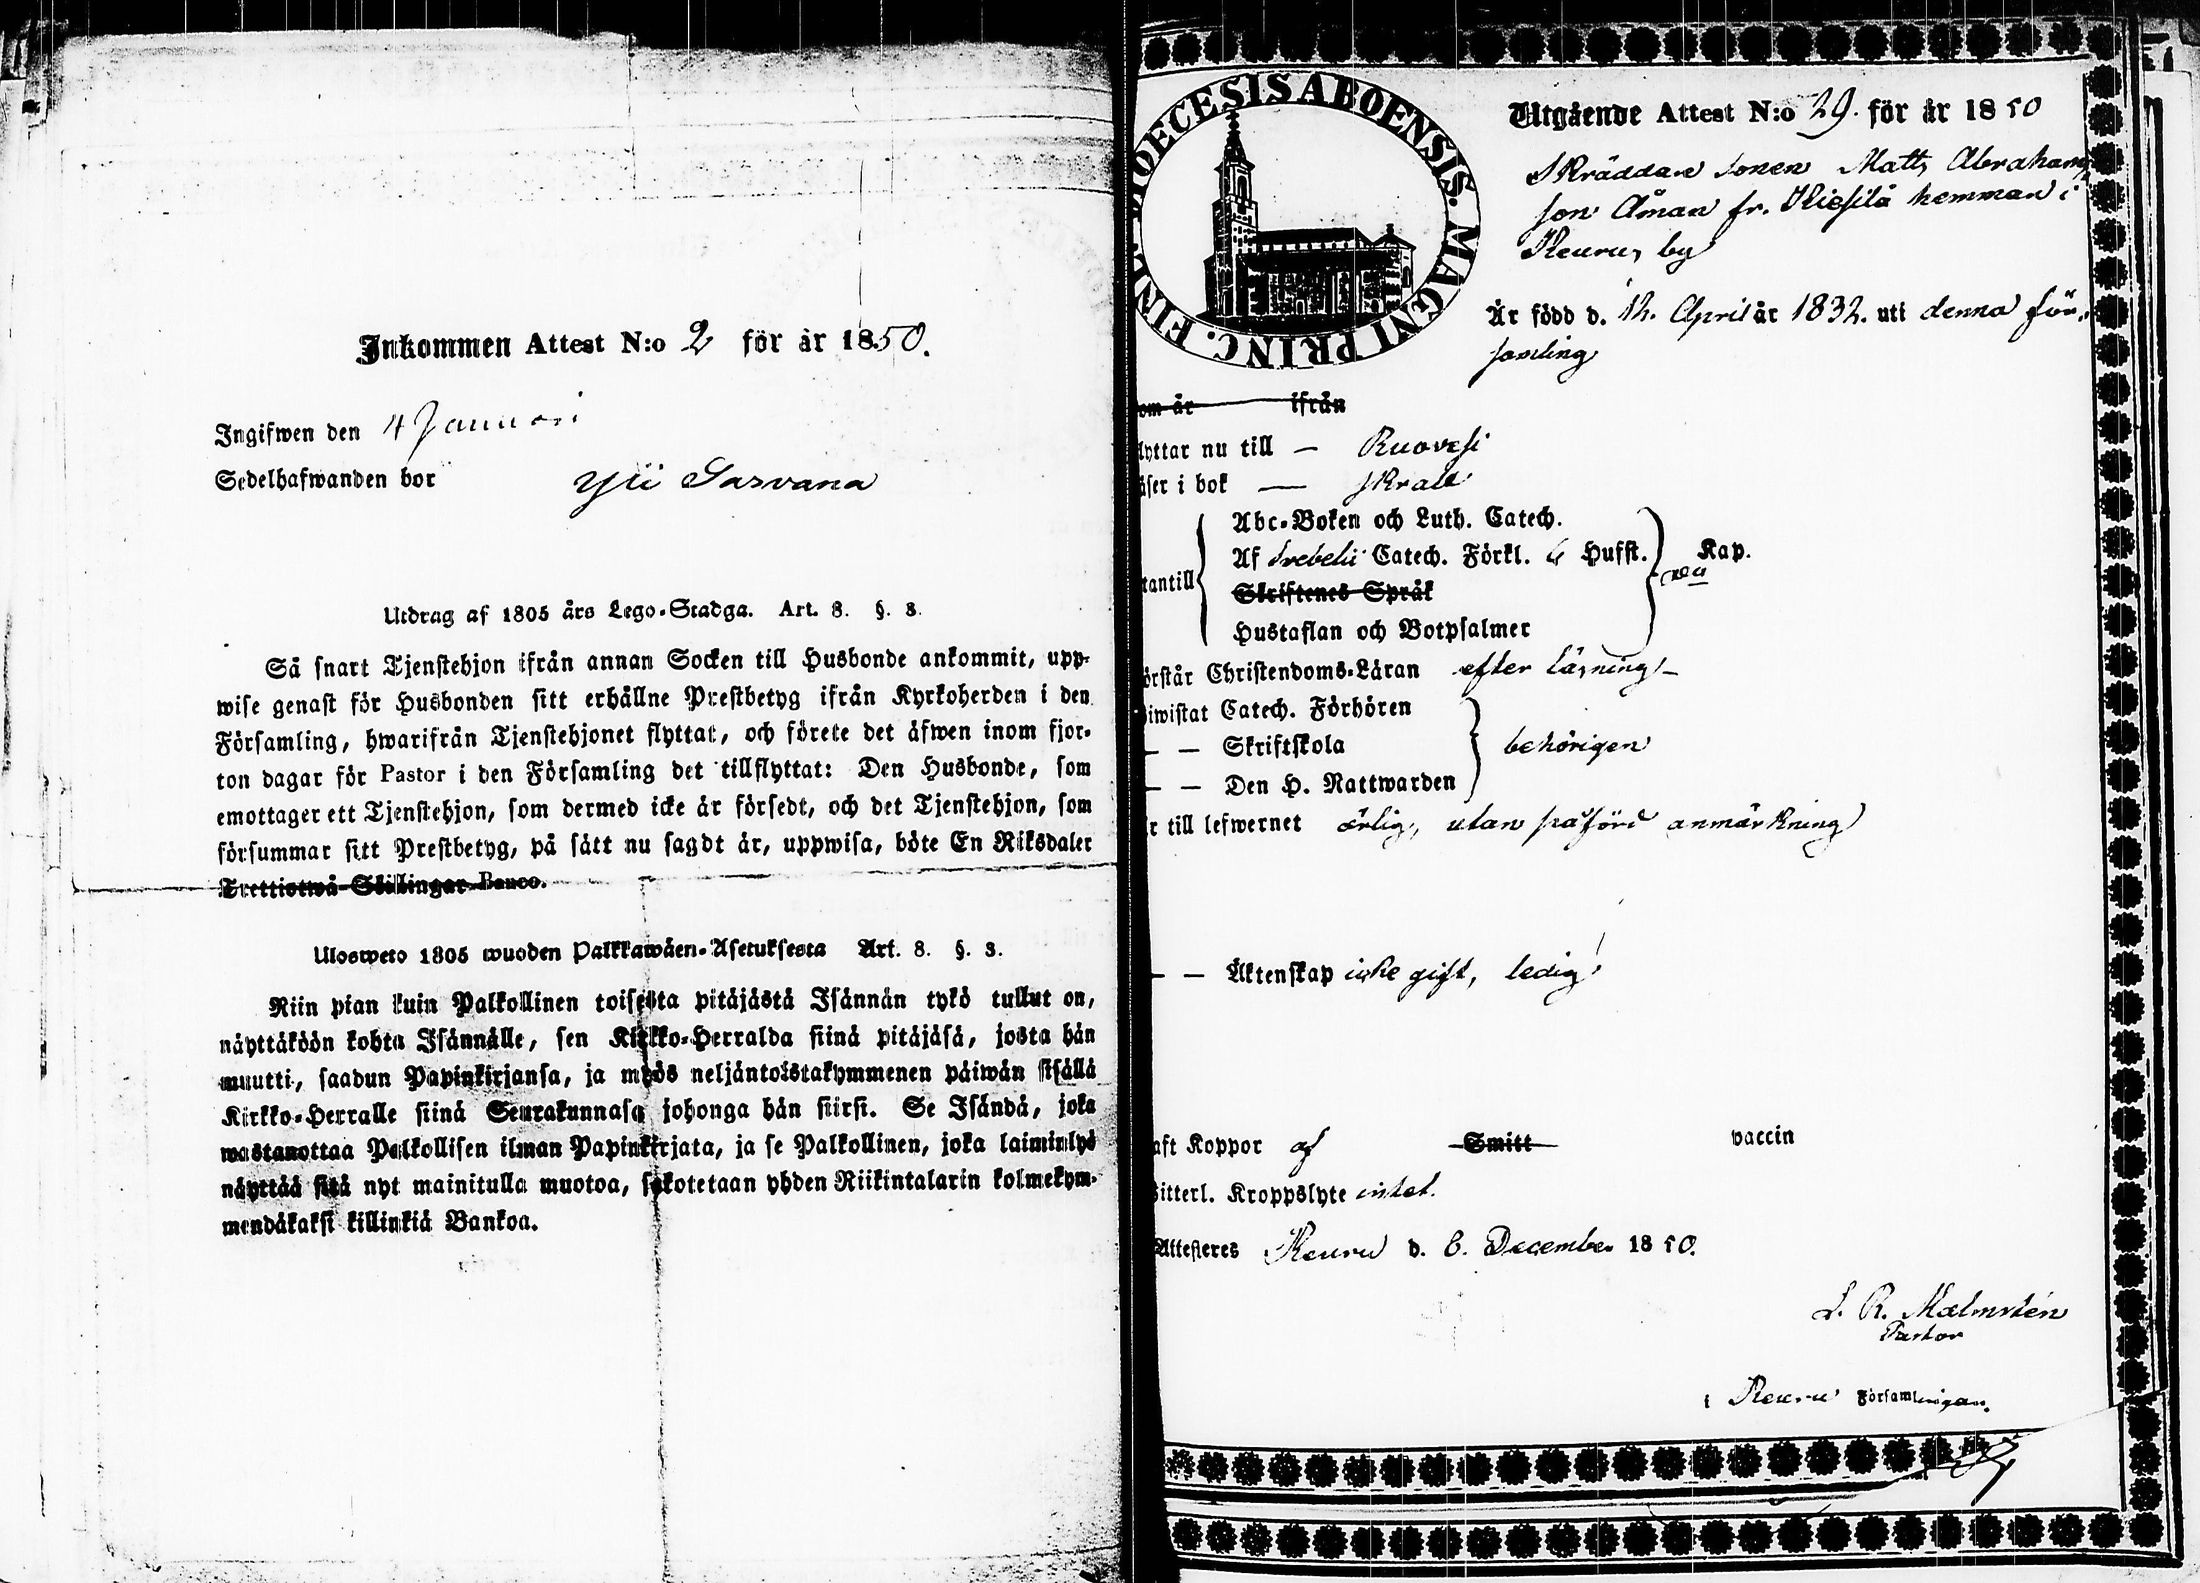 Inkommen Attest N:o 2 för år 1850.
Ingifwen den 4 Januari
Sedelhafwanden bor Yli Sarvana
Utdrag af 1805 års Lego-Stadga. Art. 8. §. 3.
Så snart Tjenstehjon ifrån annan Socken till Husbonde ankommit, upp-
wise genast för Husbonden sitt erhållne Prestbetyg ifrån Kyrkoherden i den
Församling, hwarifrån Tjenstehjonet flyttat, och förete det äfwen inom fjor-
ton dagar för Pastor i den Församling det tillflyttat: Den Husbonde, som
emottager ett Tjenstehjon, som dermed icke är försedt, och det Tjenstehjon, som
försummar sitt Prestbetyg, på sätt nu sagdt är, uppwisa, böte En Riksdaler
Trettiotwå Skillingar Banco.
Ulosweto 1805 wuoden Palkkawäen-Asetuksesta Art. 8. §. 3.
Niin pian kuin Palkollinen toisesta pitäjästä Isännän tykö tullut on,
näyttäköön kohta Isännälle, sen Kirkko-Herralda siinä pitäjäsä, josta hän
muutti, saadun Papinkirjansa, ja myös neljäntoistakymmenen päiwän sisällä
Kirkko-Herralle siinä Seurakunnasa johonga hän siirsi. Se Isändä, joka
wastanottaa Palkollisen ilman Papinkirjata, ja se Palkollinen, joka laiminlyö
näyttää sitä nyt mainitulla muotoa, sakotetaan yhden Riikintalarin kolmekym-
mendäkaksi killinkiä Bankoa.
DIOECESIS ABOENSIS. MAGNI PRINC. FINL.
Utgående Attest N:o 29. för år 1850
Skräddare sonen Matts Abrahams
son Åman fr. hemman i
Keuru by
Är född d. 12. April år 1832. uti denna för-
samling
om är ifrån
lyttar nu till — Ruovesi
äser i bok — skralt
Abc-Boken och Luth. Catech.
Af Svebelii Catech. Förkl. Husst. Kap.
tantill
Skriftenes Språk
Hustaflan och Botpsalmer
örstår Christendoms-Läran efter läsning
iwistat Catech. Förhören
— — Skriftskola behörigen
— — Den H. Nattwarden
r till lefwernet ärlig, utan påförd anmärkning
— — Äktenskap icke gift, ledig
aft Koppor af Smitt vaccin
itterl. Kroppslyte intet.
Attesteres Keuru d. 6. December 1850.
L. R. Malmstén
Pastor
i Keuru Församlingan.